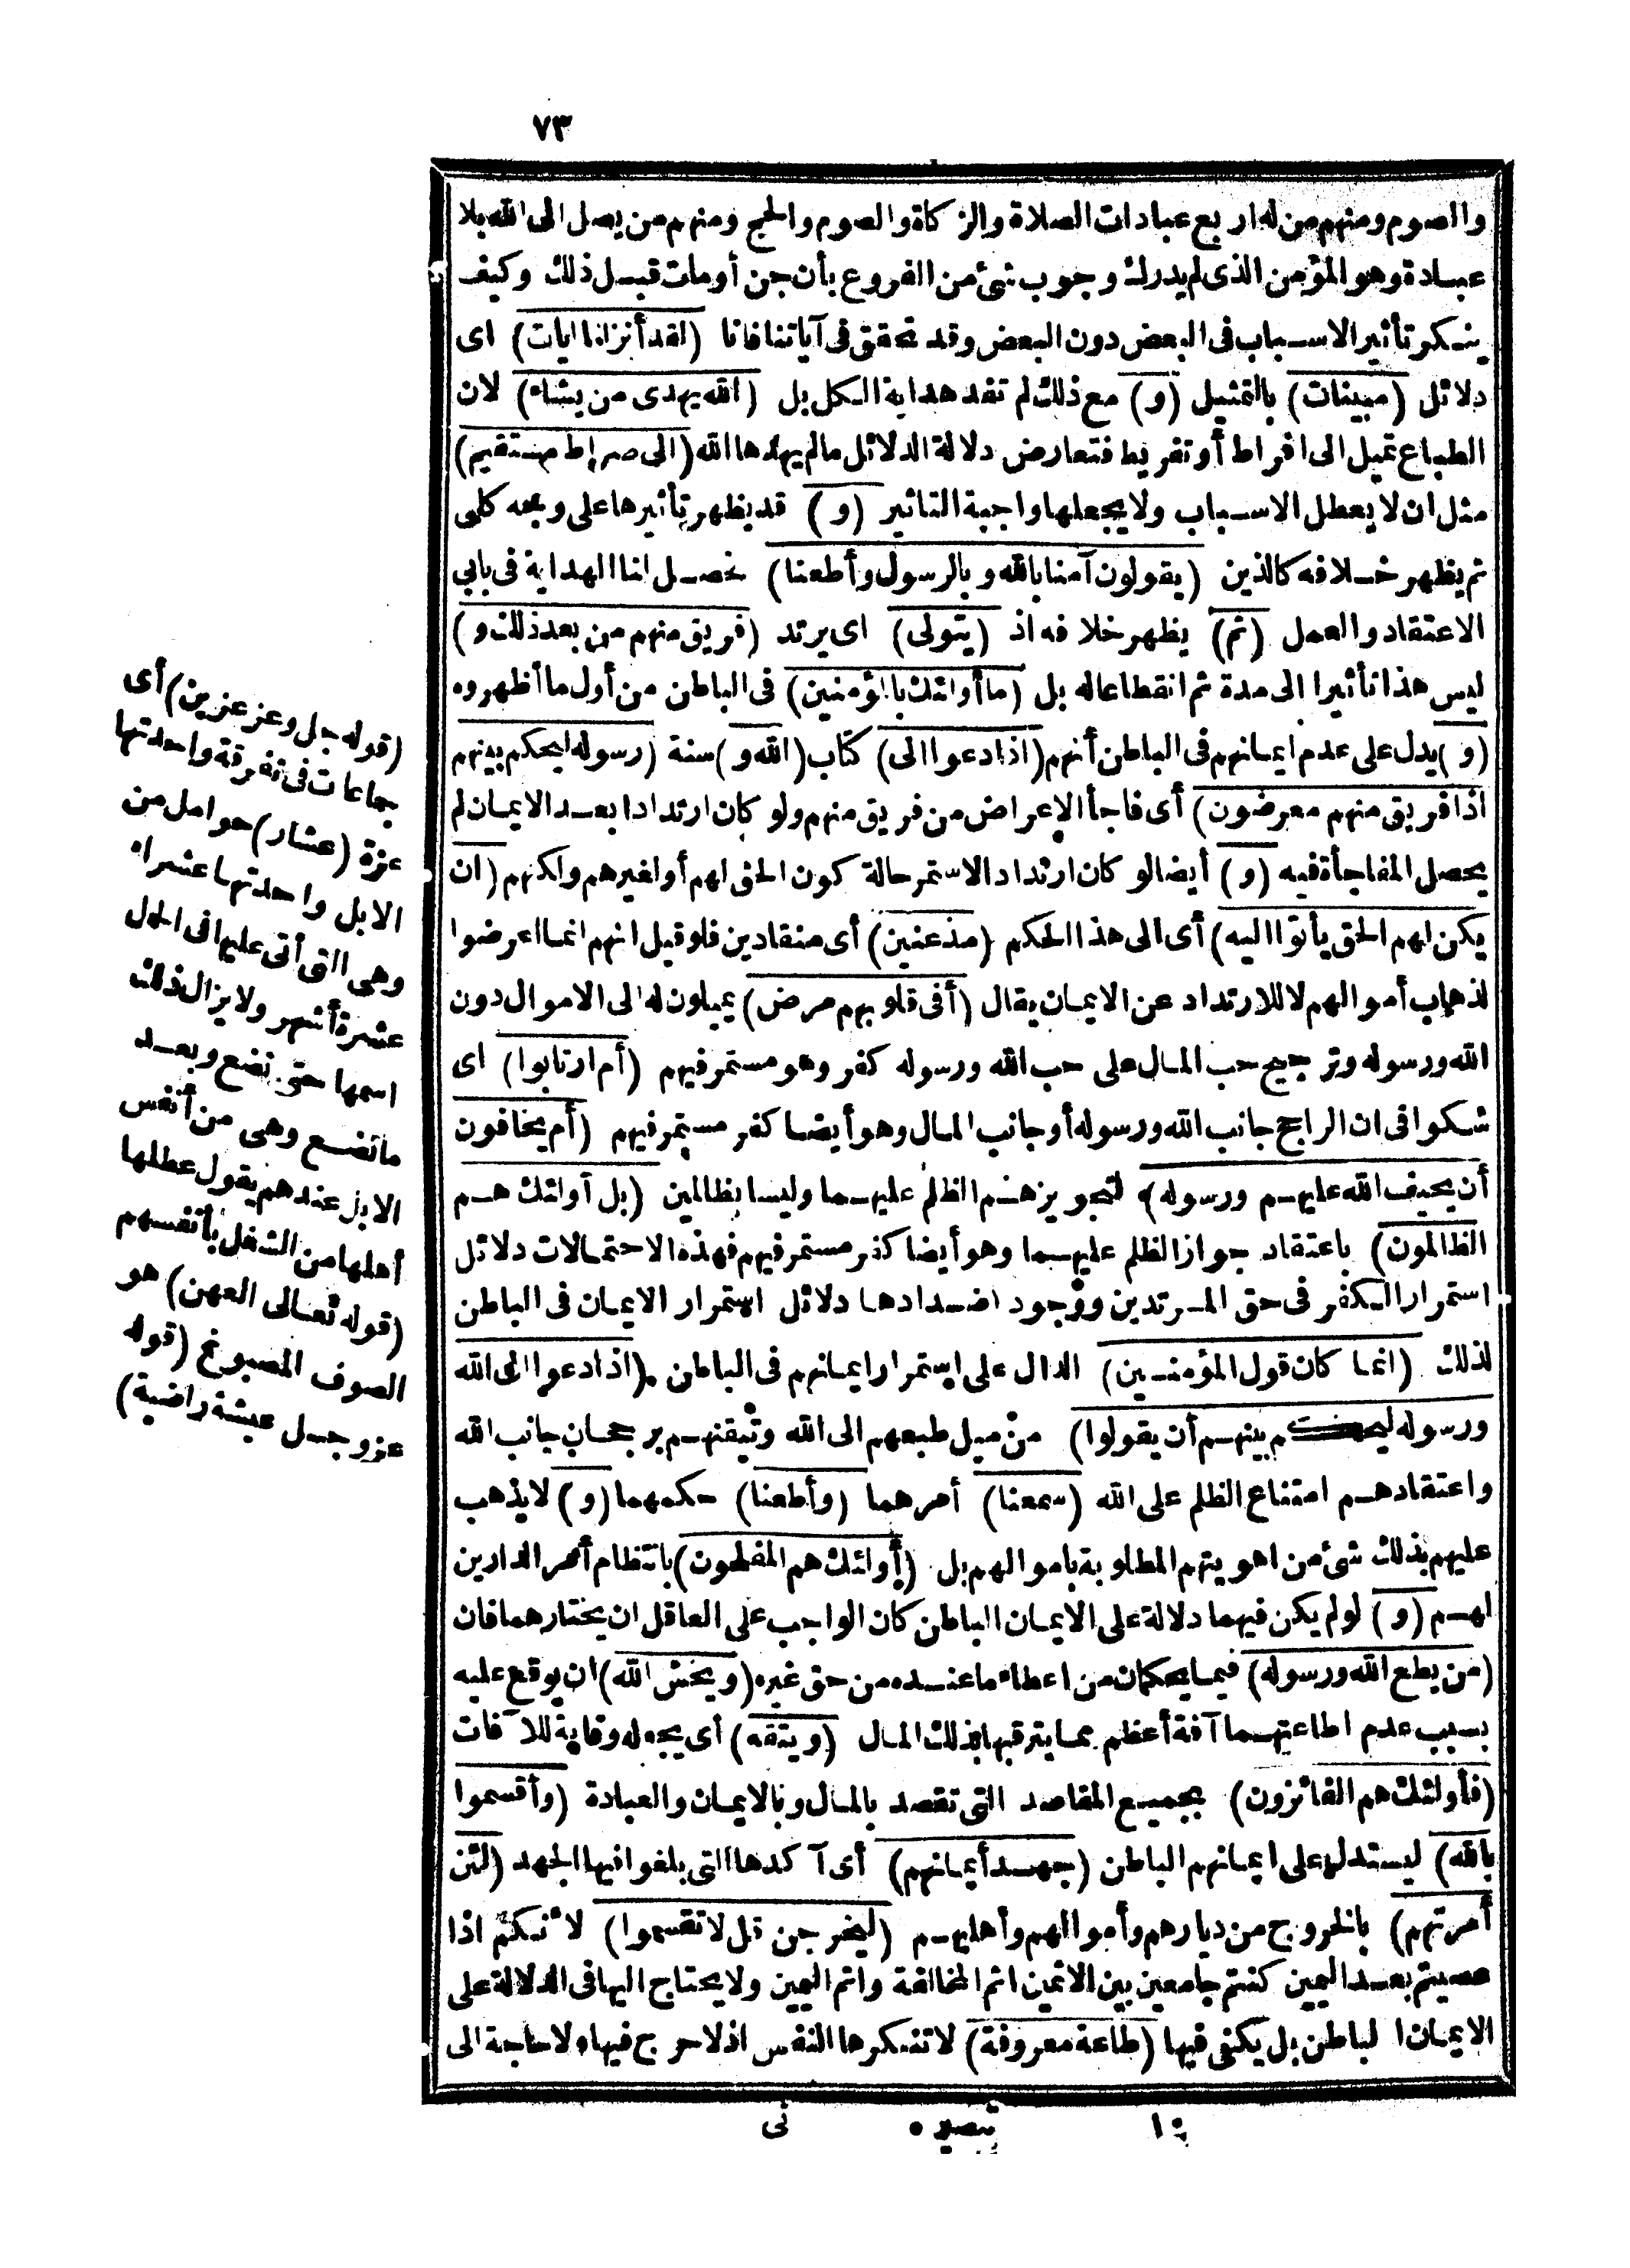 ٧٣
والصوم ومنهم من له اربع عبادات الصلاة والزكاة والصوم والحج ومنهم من يصل الى الله بلا
عبادة وهو المؤمن الذى لم يدرك وجوب شئ من الفروع بأن جن أو مات قبل ذلك وكيف
ينكر تأثير الاسباب فى البعض دون البعض وقد تحقق فى آياتنا فانا (لقد أنزلنا ايات) اى
دلائل (مبينات) بالتمثيل (و) مع ذلك لم تفد هداية الكل بل (الله يهدى من يشاء) لان
الطباع تميل الى افراط أو تفريط فتعارض دلالة الدلائل مالم يهدها الله (الى صراط مستقيم)
مثل ان لا يعطل الاسباب ولا يجعلها واجبة التاثير (و) قد يظهر تأثيرها على وجه كلى
ثم يظهر خلافه كالذين (يقولون آمنا بالله وبالرسول وأطعنا) فحصل لنا الهداية فى بابى
الاعتقاد والعمل (ثم) يظهر خلافه اذ (يتولى) اى يرتد (فريق منهم من بعد ذلك و)
ليس هذا تأثيرا الى مدة ثم انقطاعا له بل (ما أولئك بالمؤمنين) فى الباطن من أول ما أظهروه
(و) يدل على عدم ايمانهم فى الباطن أنهم (اذا دعوا الى) كتاب (الله و) سنة (رسوله ليحكم بينهم
اذا فريق منهم معرضون) أى فاجأ الاعراض من فريق منهم ولو كان ارتدادا بعد الايمان لم
يحصل المفاجأة فيه (و) أيضا لو كان ارتدادا لاستمر حالة كون الحق لهم أو لغيرهم ولكنهم (ان
يكن لهم الحق يأتوا اليه) أى الى هذا الحكم (مذعنين) أى منقادين فلو قيل انهم انما اعرضوا
لذهاب أموالهم لا للارتداد عن الايمان يقال (أفى قلوبهم مرض) يميلون له الى الاموال دون
الله ورسوله وترجيح حب المال على حب الله ورسوله كفر وهو مستمر فيهم (أم ارتابوا) اى
شكوا فى ان الراجح جانب الله ورسوله أو جانب المال وهو أيضا كفر مستمر فيهم (أم يخافون
أن يحيف الله عليهم ورسوله) لتجويزهم الظلم عليهما وليسا بظالمين (بل أولئك هم
الظالمون) باعتقاد جواز الظلم عليهما وهو أيضا كفر مستمر فيهم فهذه الاحتمالات دلائل
استمرار الكفر فى حق المرتدين ووجود اضدادها دلائل استمرار الايمان فى الباطن
لذلك (انما كان قول المؤمنين) الدال على استمرار ايمانهم فى الباطن (اذا دعوا الى الله
ورسوله ليحكم بينهم أن يقولوا) من ميل طبعهم الى الله وتيقنهم برجحان جانب الله
واعتقادهم امتناع الظلم على الله (سمعنا) أمرهما (وأطعنا) حكمهما (و) لا يذهب
عليهم بذلك شئ من اهويتهم المطلوبة باموالهم بل (أولئك هم المفلحون) بانتظام أمر الدارين
لهم (و) لو لم يكن فيهما دلالة على الايمان الباطن كان الواجب على العاقل ان يختارهما فان
(من يطع الله ورسوله) فيما يحكمان من اعطاء ما عنده من حق غيره (ويخش الله) ان يوقع عليه
بسبب عدم اطاعتهما آفة أعظم مما يترقبها بذلك المال (ويتقه) أى يجعله وقاية للآفات
(فأولئك هم الفائزون) بجميع المقاصد التى تقصد بالمال وبالايمان والعبادة (وأقسموا
بالله) ليستدل على ايمانهم الباطن (جهد أيمانهم) أى آكدها التى بلغوا فيها الجهد (لئن
أمرتهم) بالخروج من ديارهم وأموالهم وأهليهم (ليخرجن قل لا تقسموا) لأنكم اذا
عصيتم بعد اليمين كنتم جامعين بين الاثمين اثم المخالفة واثم اليمين ولا يحتاج اليها فى الدلالة على
الايمان الباطن بل يكفى فيها (طاعة معروفة) لا تنكرها النفس اذ لا حرج فيها ولا حاجة الى
١٠ تبصير ٥ نى
(قوله جل وعز عزين) أى
جماعات فى تفرقة واحدتها
عزة (عشار) حوامل من
الابل واحدتها عشراء
وهى التى أتى عليها فى الحمل
عشرة أشهر ولا يزال ذلك
اسمها حتى تضع وبعد
ما تضع وهى من أنفس
الابل عندهم يقول عطلها
أهلها من الشغل بأنفسهم
(قوله تعالى العهن) هو
الصوف المصبوغ (قوله
عز وجل عيشة راضية)